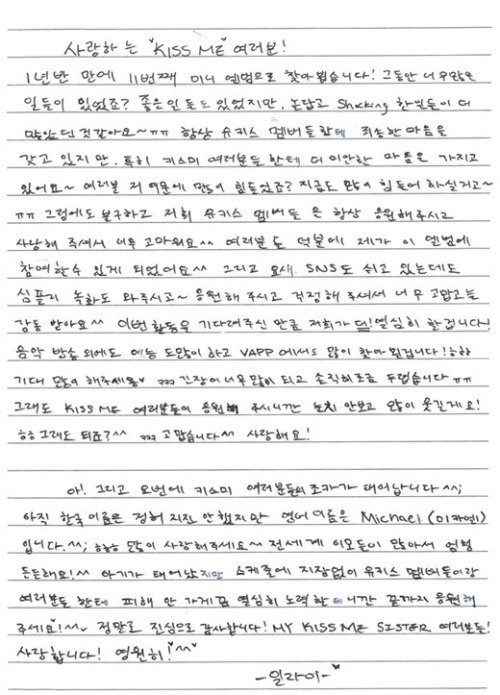 사랑하는 "KISS ME" 여러분!
1년반 만에 11번째 미니 엘범으로 찾아뵙습니다! 그동안 너무많은
일들이 있었죠? 좋은일들도 있었지만, 논랍고 Shocking 한일들이 더
많았던것같아요~ㅠㅠ 항상 유키스 멤버들한테 죄송한마음을
갖고 있지만, 특히 키스미 여러분들 한테 더 미안한 마음을 가지고
있어요~ 여러분 저 때문에 많이 힘들었죠? 지금도 많이 힘들어 하실거고~
ㅠㅠ 그럼에도 불구하고 저희 유키스 멤버들은 항상 응원해주시고
사랑해 주셔서 너무 고마워요^^ 여러분들 덕분에 제가 이 엘범에
참여할수 있게 되었어요^^ 그리고 요새 SNS도 쉬고 있는데도
심플리 녹화도 와주시고~ 응원해 주시고 걱정해 주셔서 너무 고맙고
감동 받아요^^ 이번활동을 기다려주신 만큼 저희가 더! 열심히 할겁니다!
음악 방송 외에도 예능 도많이 하고 VAPP 에서도 많이 찾아뵐겁니다! ㅎㅎ
기대 많이 해주세용♥ ㅋㅋㅋ 긴장이너무많이 되고 솔직히조금 두렵습니다 ㅠㅠ
그래도 KISS ME 여러분들이 응원해 주시니깐 눈치 안보고 많이 웃길게요!
ㅎㅎ 그래도 되죠?^^ ㅋㅋㅋ 고맙습니다^^ 사랑해요!
아! 그리고 요번에 키스미 여러분들의 조카가 태어납니다^^;
아직 한국이름은 정해 지진 안했지만 영어이름은 Michael (미카엘)
입니다.^^; ㅎㅎㅎ 많이 사랑해주세요~ 전세계 이모들이 많아서 엄청
든든해요!^^ 아기가 태어났지만 스케줄에 지장없이 유키스 멤버들이랑
여러분들 한테 피해 안 가게끔 열심히 노력할테니깐 끝까지 응원해
주세요!^^ 정말로 진심으로 감사합니다! MY KISS ME SISTER 여러분들!
사랑합니다! 영원히!^^♥
-일라이-♥